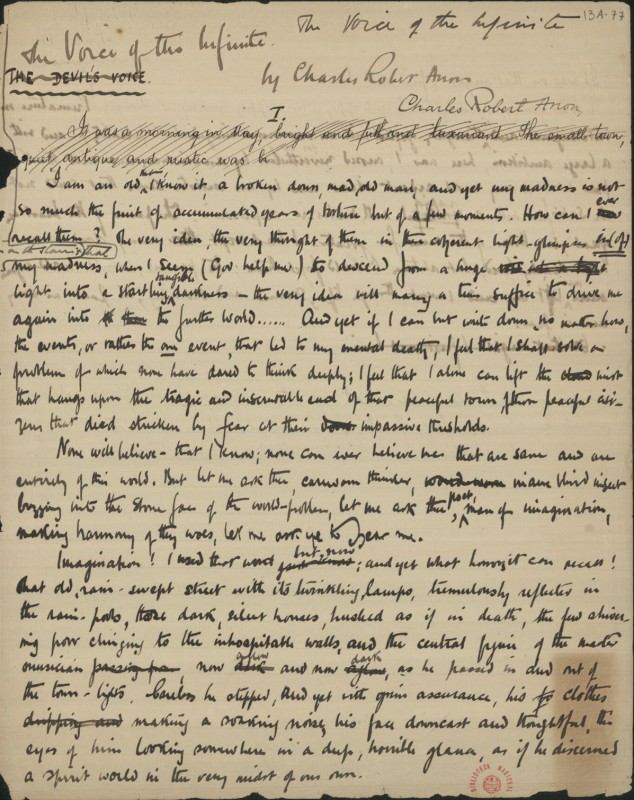 The Voice of the Infinite
13A-77
The Voice of the Infinite.
THE DEVILS VOICE.
by Charles Robert Anon
Charles Robert Anon
I.
It was a morning in May, bright and full and luxuriant. The small town,
quiet antique and rustic was
I am an old, I know it, a broken down, mad, old man, and yet my madness is not
so much the fruit of accumulated years of torture but of a few moments. How can I ever
recall them? The very idea, the very thought of them in this coherent light-glimpses in (of)
my madness, when I seem (God help me) to descend from a huge
light into a startling tangible darkness — the very idea will many a time suffice to drive me
again into the further world...... And yet if I can but write down, no matter how,
the events, or rather the one event, that led to my mental death, I feel that I shall solve a
problem of which none have dared to think deeply; I feel that I alone can lift the mist
that hangs upon the tragic and inscrutable end of that peaceful town, of those peaceful citi-
zens that died stricken by fear at their impassive thresholds.
None will believe - that I know; none can ever believe me that are sane and are
entirely of this world. But let me ask thee, careworn thinker, inane blind insect
buzzing into the stone face of the world-problem, let me ask thee, poet, man of imagination,
making harmony of thy woes, let me ask ye to hear me.
Imagination! I used that word but now; and yet what horrors it can recall!
That old, rain-swept street with its twinkling lamps, tremulously reflected in
the rain-pools, those dark, silent houses, hushed as if in death, the few shiver-
ing poor clinging to the inhospitable walls, and the central figure of the master
musician, now aglow and now dark, as he passed in and out of
the town-lights. Careless he stepped, and yet with grim assurance, his clothes
dripping and making a soaking noise, his face downcast and thoughtful, the
eyes of him looking somewhere in a deep, horrible glance, as if he discerned
a spirit world in the very midst of our own.
BIBLIOTECA NACIONAL